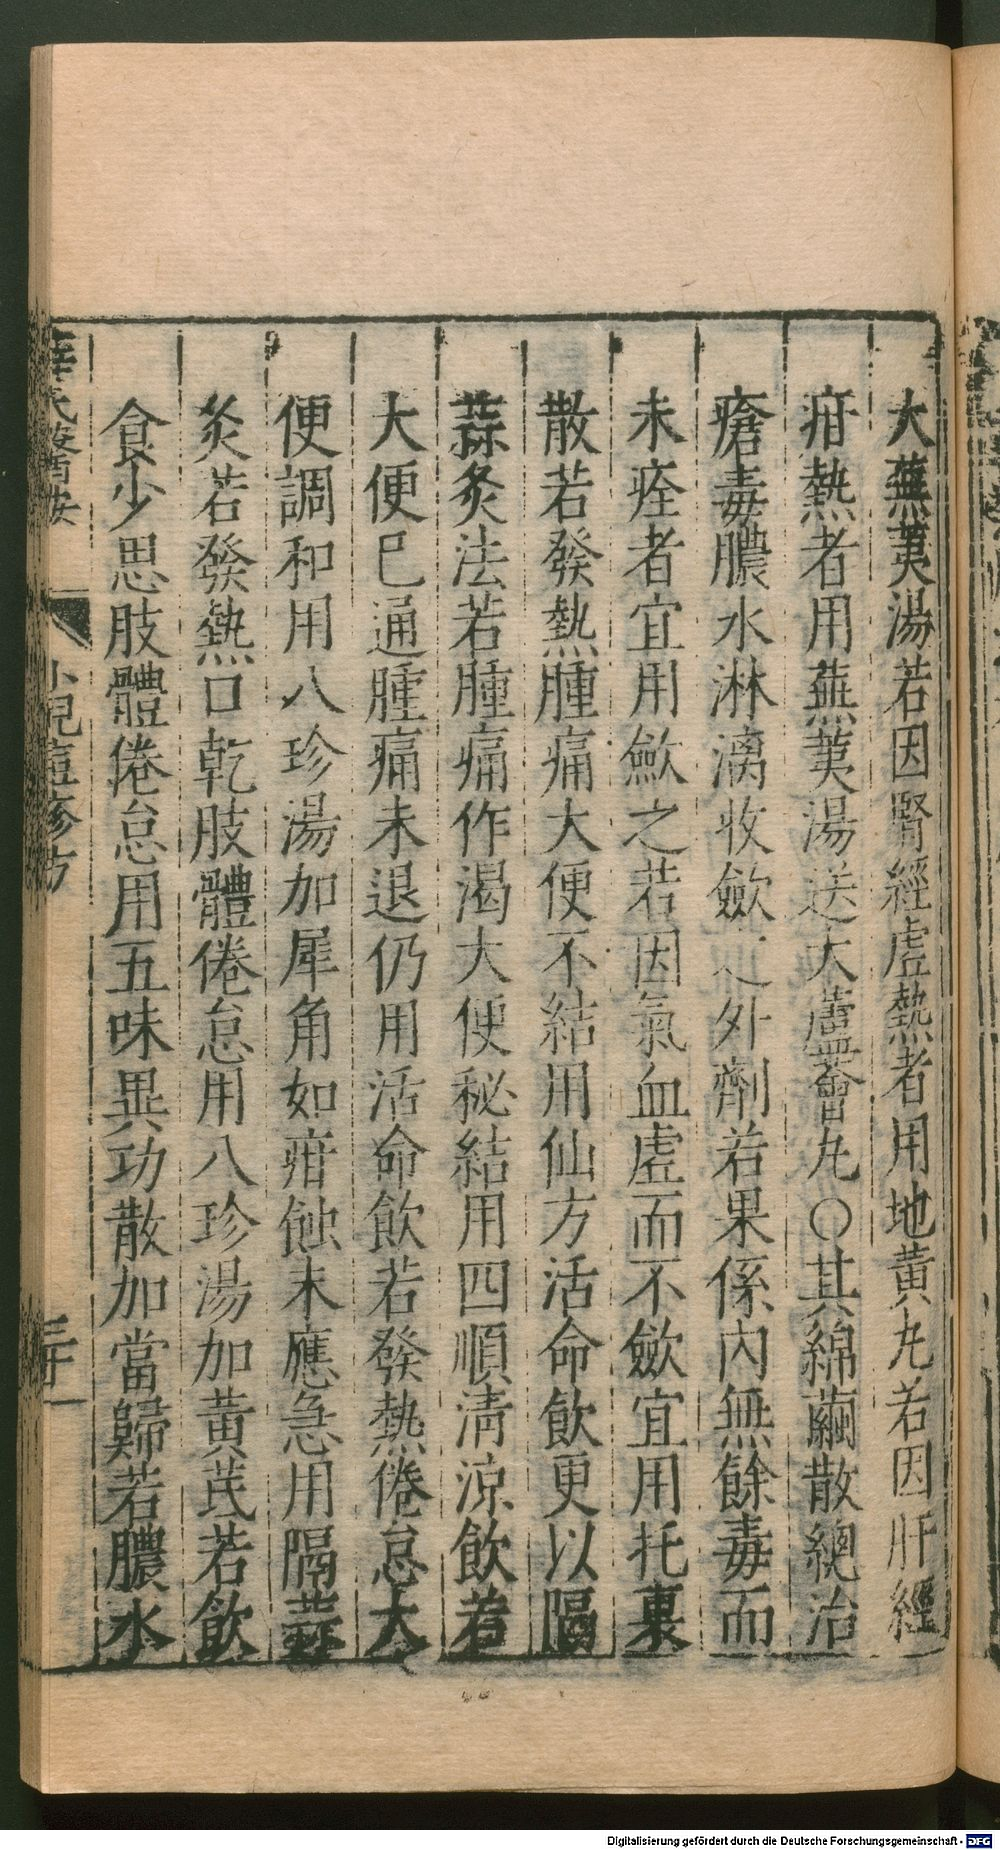 大蕪荑湯若因腎經虛熱者用地黃丸若因肝經
疳熱者用蕪荑湯送大蘆薈丸○其綿繭散總治
瘡毒膿水淋漓收斂之外劑若果係內無餘毒而
未痊者宜用歛之若因氣血虛而不歛宜用托裏
散若發熱腫痛大便不結用仙方活命飲更以隔
蒜灸法若腫痛作渴大便秘結用四順清涼飲若
大便已通腫痛未退仍用活命飲若發熱倦怠大
便調和用八珍湯加犀角如疳蝕未應急用隔蒜
灸若發熱口乾肢體倦怠用八珍湯加黃芪若飲
食少思肢體倦怠用五味異功散加當歸若膿水
薛氏醫按 小兒痘疹方
Digitalisierung gefördert durch die Deutsche Forschungsgemeinschaft - DFG